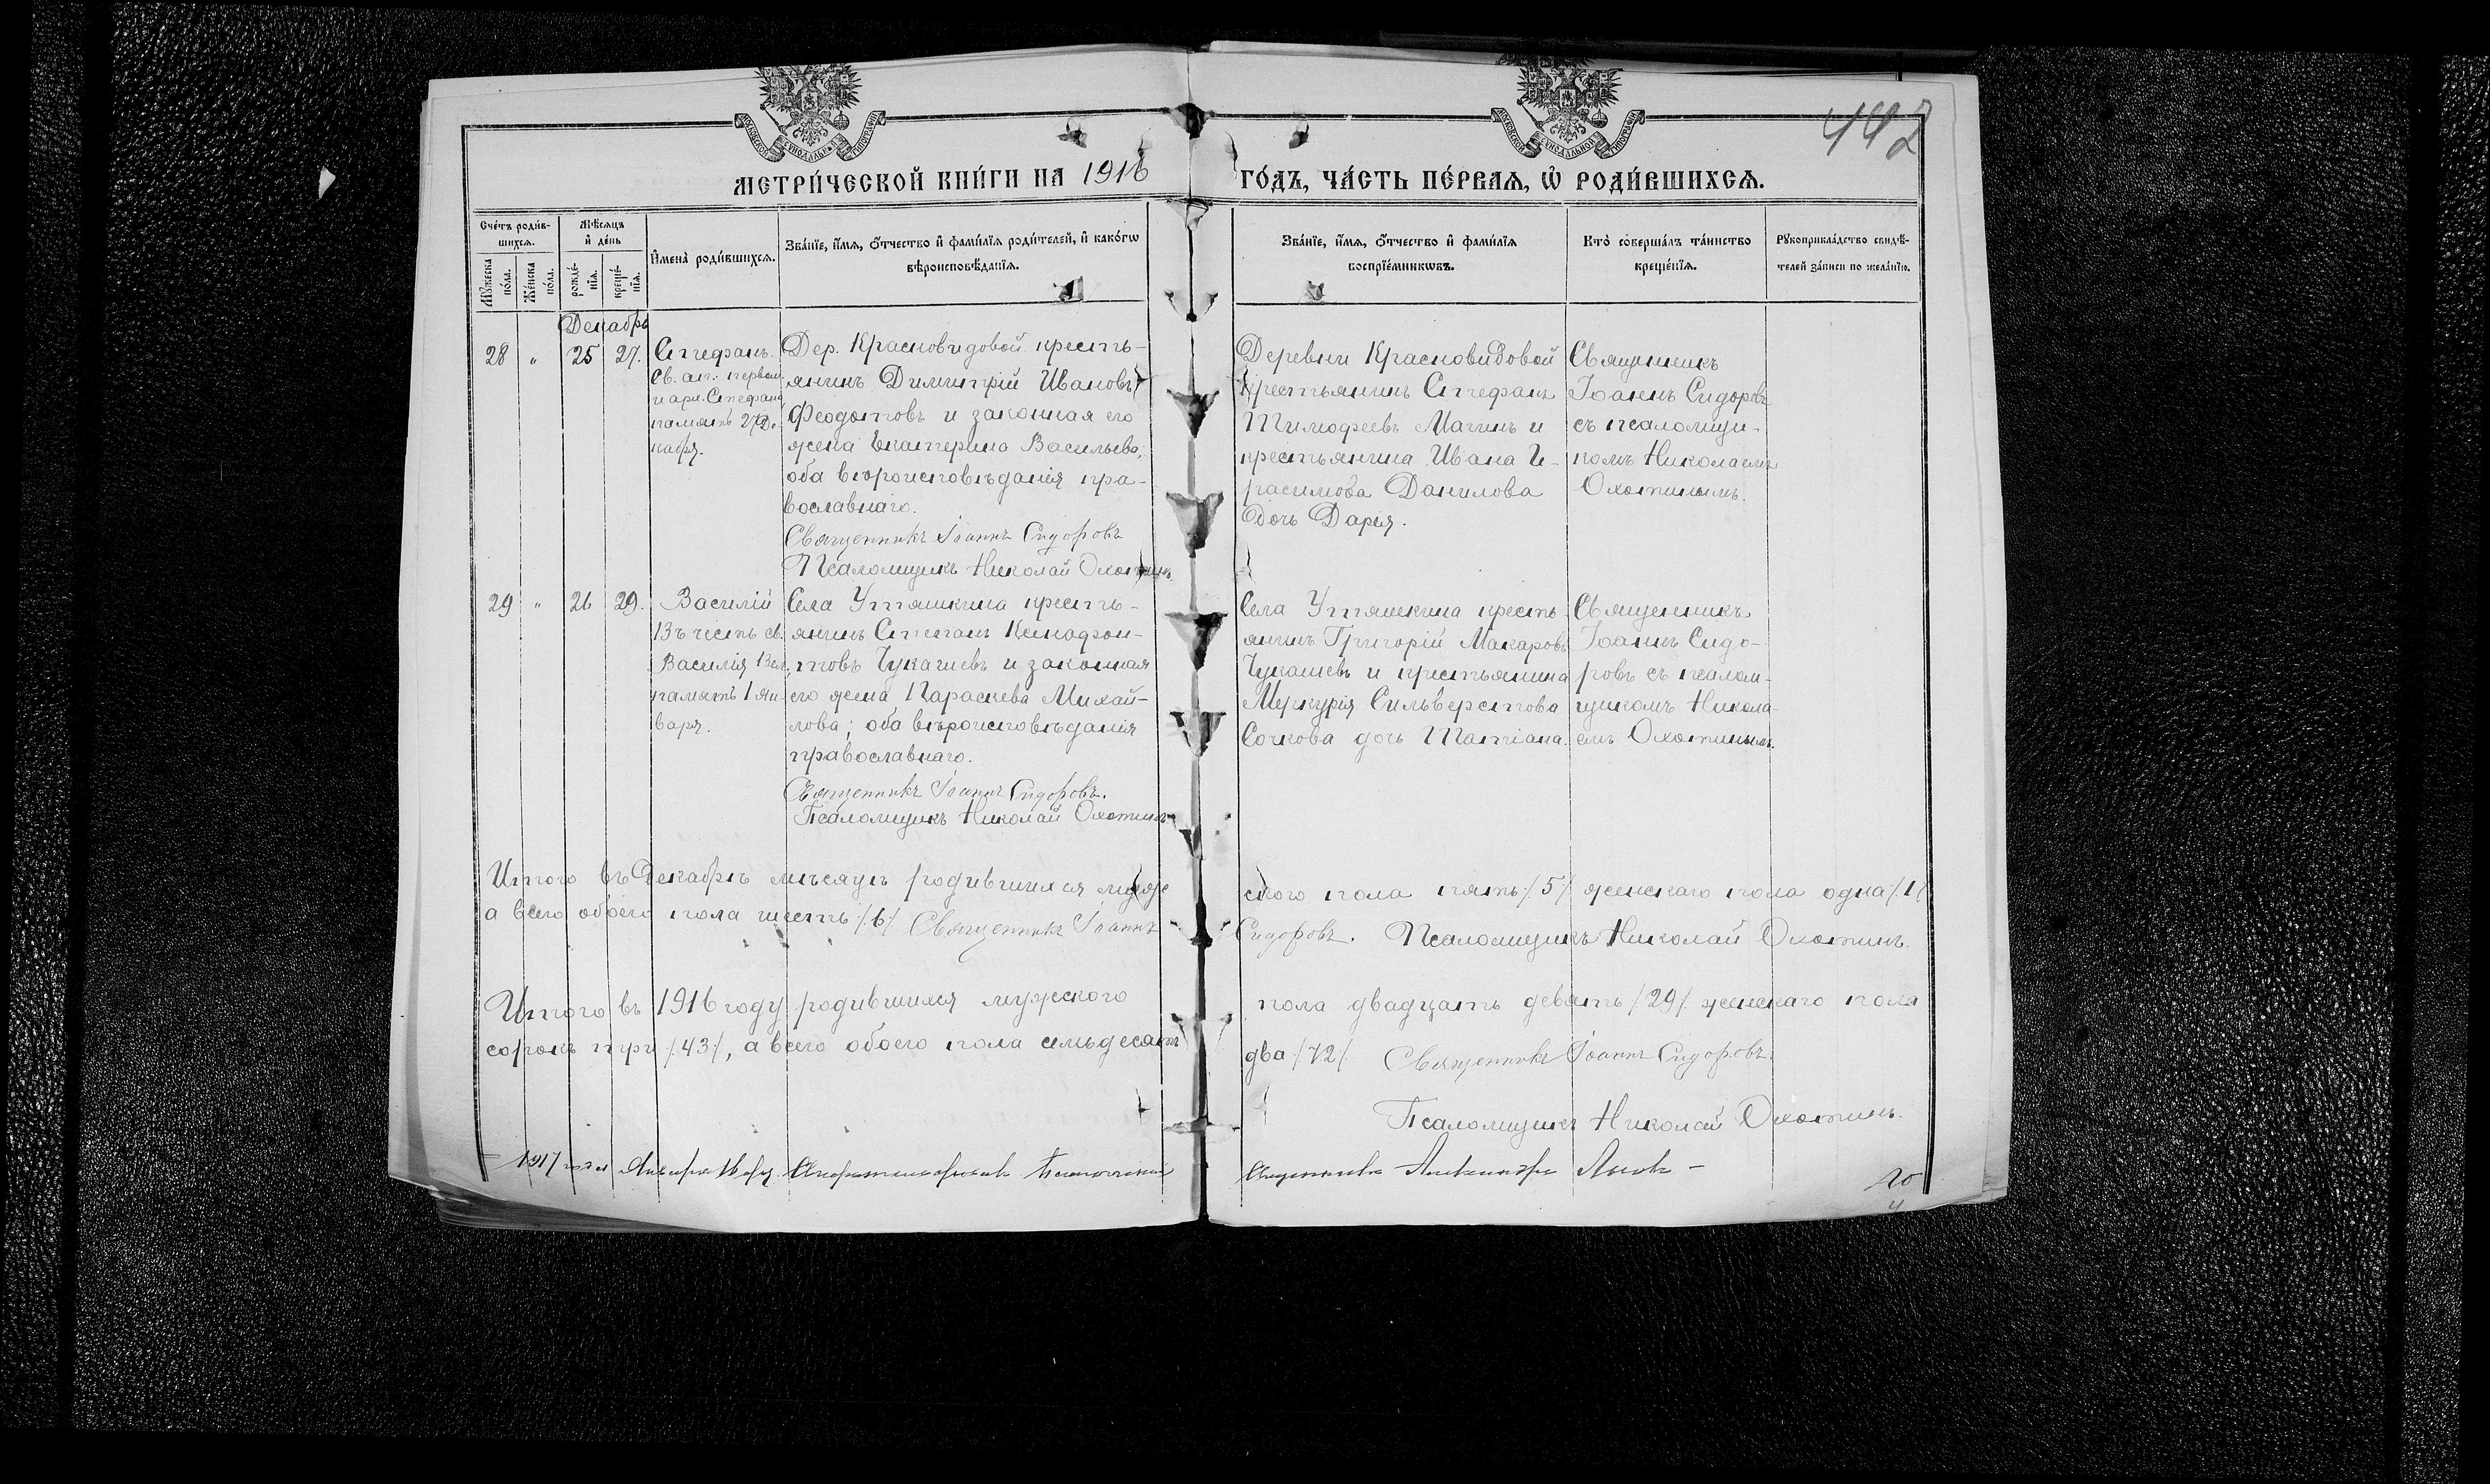 442
МОСКОВСКОЙ СѴНОДАЛЬНОЙ ТИПОГРАФІИ
МОСКОВСКОЙ СѴНОДАЛЬНОЙ ТИПОГРАФІИ
МЕТРИ́ЧЕСКОЙ КНИ́ГИ НА 1916 ГО́ДЪ, ЧА́СТЬ ПЕ́РВАѦ, Ѡ҆ РОДИ́ВШИХСѦ.
Сче́тъ роди́в-
шихсѧ.
Мꙋ́жеска по́ла.
Же́нска по́ла.
Мѣ́сѧцъ
и҆ де́нь
рожде́-
нїѧ.
креще́-
нїѧ.
И҆мена̀ роди́вшихсѧ.
Зва́нїе, и҆́мѧ, ѻ҆́тчество и҆ фами́лїѧ роди́телей, и҆ како́гѡ
вѣроисповѣ́данїѧ.
Зва́нїе, и҆́мѧ, ѻ҆́тчество и҆ фами́лїѧ
воспрїе́мникѡвъ.
Кто̀ соверша́лъ та́инство
креще́нїѧ.
Рꙋкоприкла́дство свидѣ́-
телей за́писи по жела́нїю.
Декабрь
28 „ 25 27.
Стефанъ.
Св. ап. первом.
и арх. Стефана
память 27 Де-
кабря.
Дер. Красновидовой кресть-
янинъ Димитрій Ивановъ
Феодотовъ и законная его
жена Екатерина Васильева,
оба вѣроисповѣданія пра-
вославнаго.
Священникъ Іоаннъ Сидоровъ
Псаломщикъ Николай Охотинъ.
Деревни Красновидовой
крестьянинъ Стефанъ
Тимофеевъ Магинъ и
крестьянина Ивана Ге-
расимова Данилова
дочь Дарія.
Священникъ
Іоаннъ Сидоровъ
съ псаломщи-
комъ Николаемъ
Охотинымъ.
29 „ 26 29.
Василій
Въ честь св.
Василія Вел.
память 1 ян-
варя.
Села Утяшкина кресть-
янинъ Степанъ Ксенофон-
товъ Чукашевъ и законная
его жена Параскева Михай-
лова; оба вѣроисповѣданія
православнаго.
Священникъ Іоаннъ Сидоровъ.
Псаломщикъ Николай Охотинъ
Села Утяшкина кресть-
янинъ Григорій Макаровъ
Чукашевъ и крестьянина
Меркурія Сильверстова
Сочкова дочь Татіана.
Священникъ
Іоаннъ Сидо-
ровъ съ псалом-
щикомъ Никола-
емъ Охотинымъ.
Итого въ Декабрѣ мѣсяцѣ родившихся мужс ского пола пять /5/ женскаго пола одна /1/
а всего обоего пола шесть /6/ Священникъ Іоаннъ Сидоровъ. Псаломщикъ Николай Охотинъ.
Итого въ 1916 году родившихся мужского пола двадцать девять /29/ женскаго пола
сорокъ три /43/, а всего обоего пола семьдесятъ два /72/ Священникъ Іоаннъ Сидоровъ.
Псаломщикъ Николай Охотинъ.
1917 года Января
Священникъ Александръ